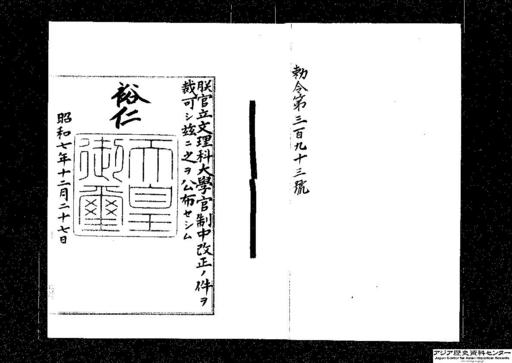 勅令第三百九十三號
朕官立文理科大學官制中改正ノ件ヲ
裁可シ玆ニ之ヲ公布セシム
裕仁
天皇
御璽
昭和七年十二月二十七日
アジア歴史資料センター
Japan Center for Asian Historical Records